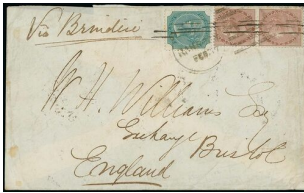 Via Brindisi
W. H. Williams Esq
Exchange Bristol
England